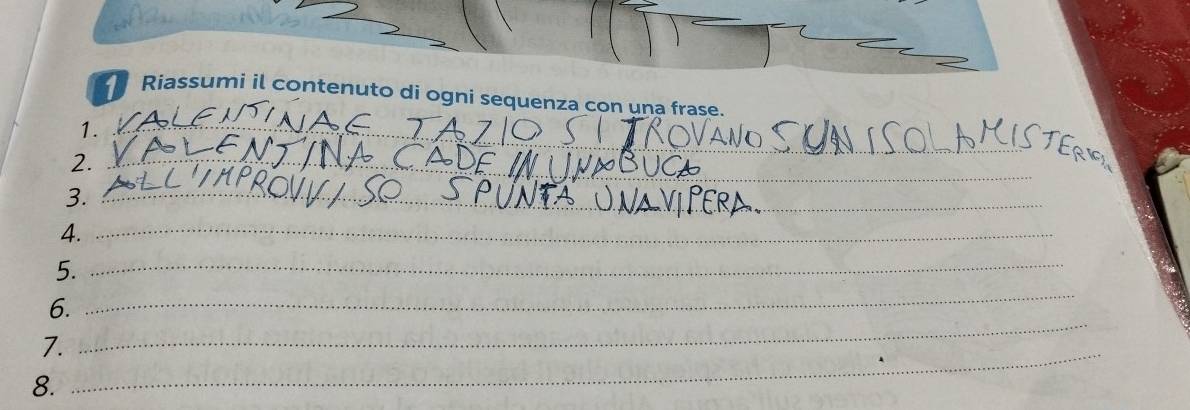 1 Riassumi il contenuto di ogni sequenza con una frase.
1. VALENTINA E TAZIO SI TROVANO SUN ISOLA MISTERIO
2. VALENTINA CADE IN UNA BUCA
3. ALL'IMPROVVISO SPUNTA UNA VIPERA.
4.
5.
6.
7.
8.